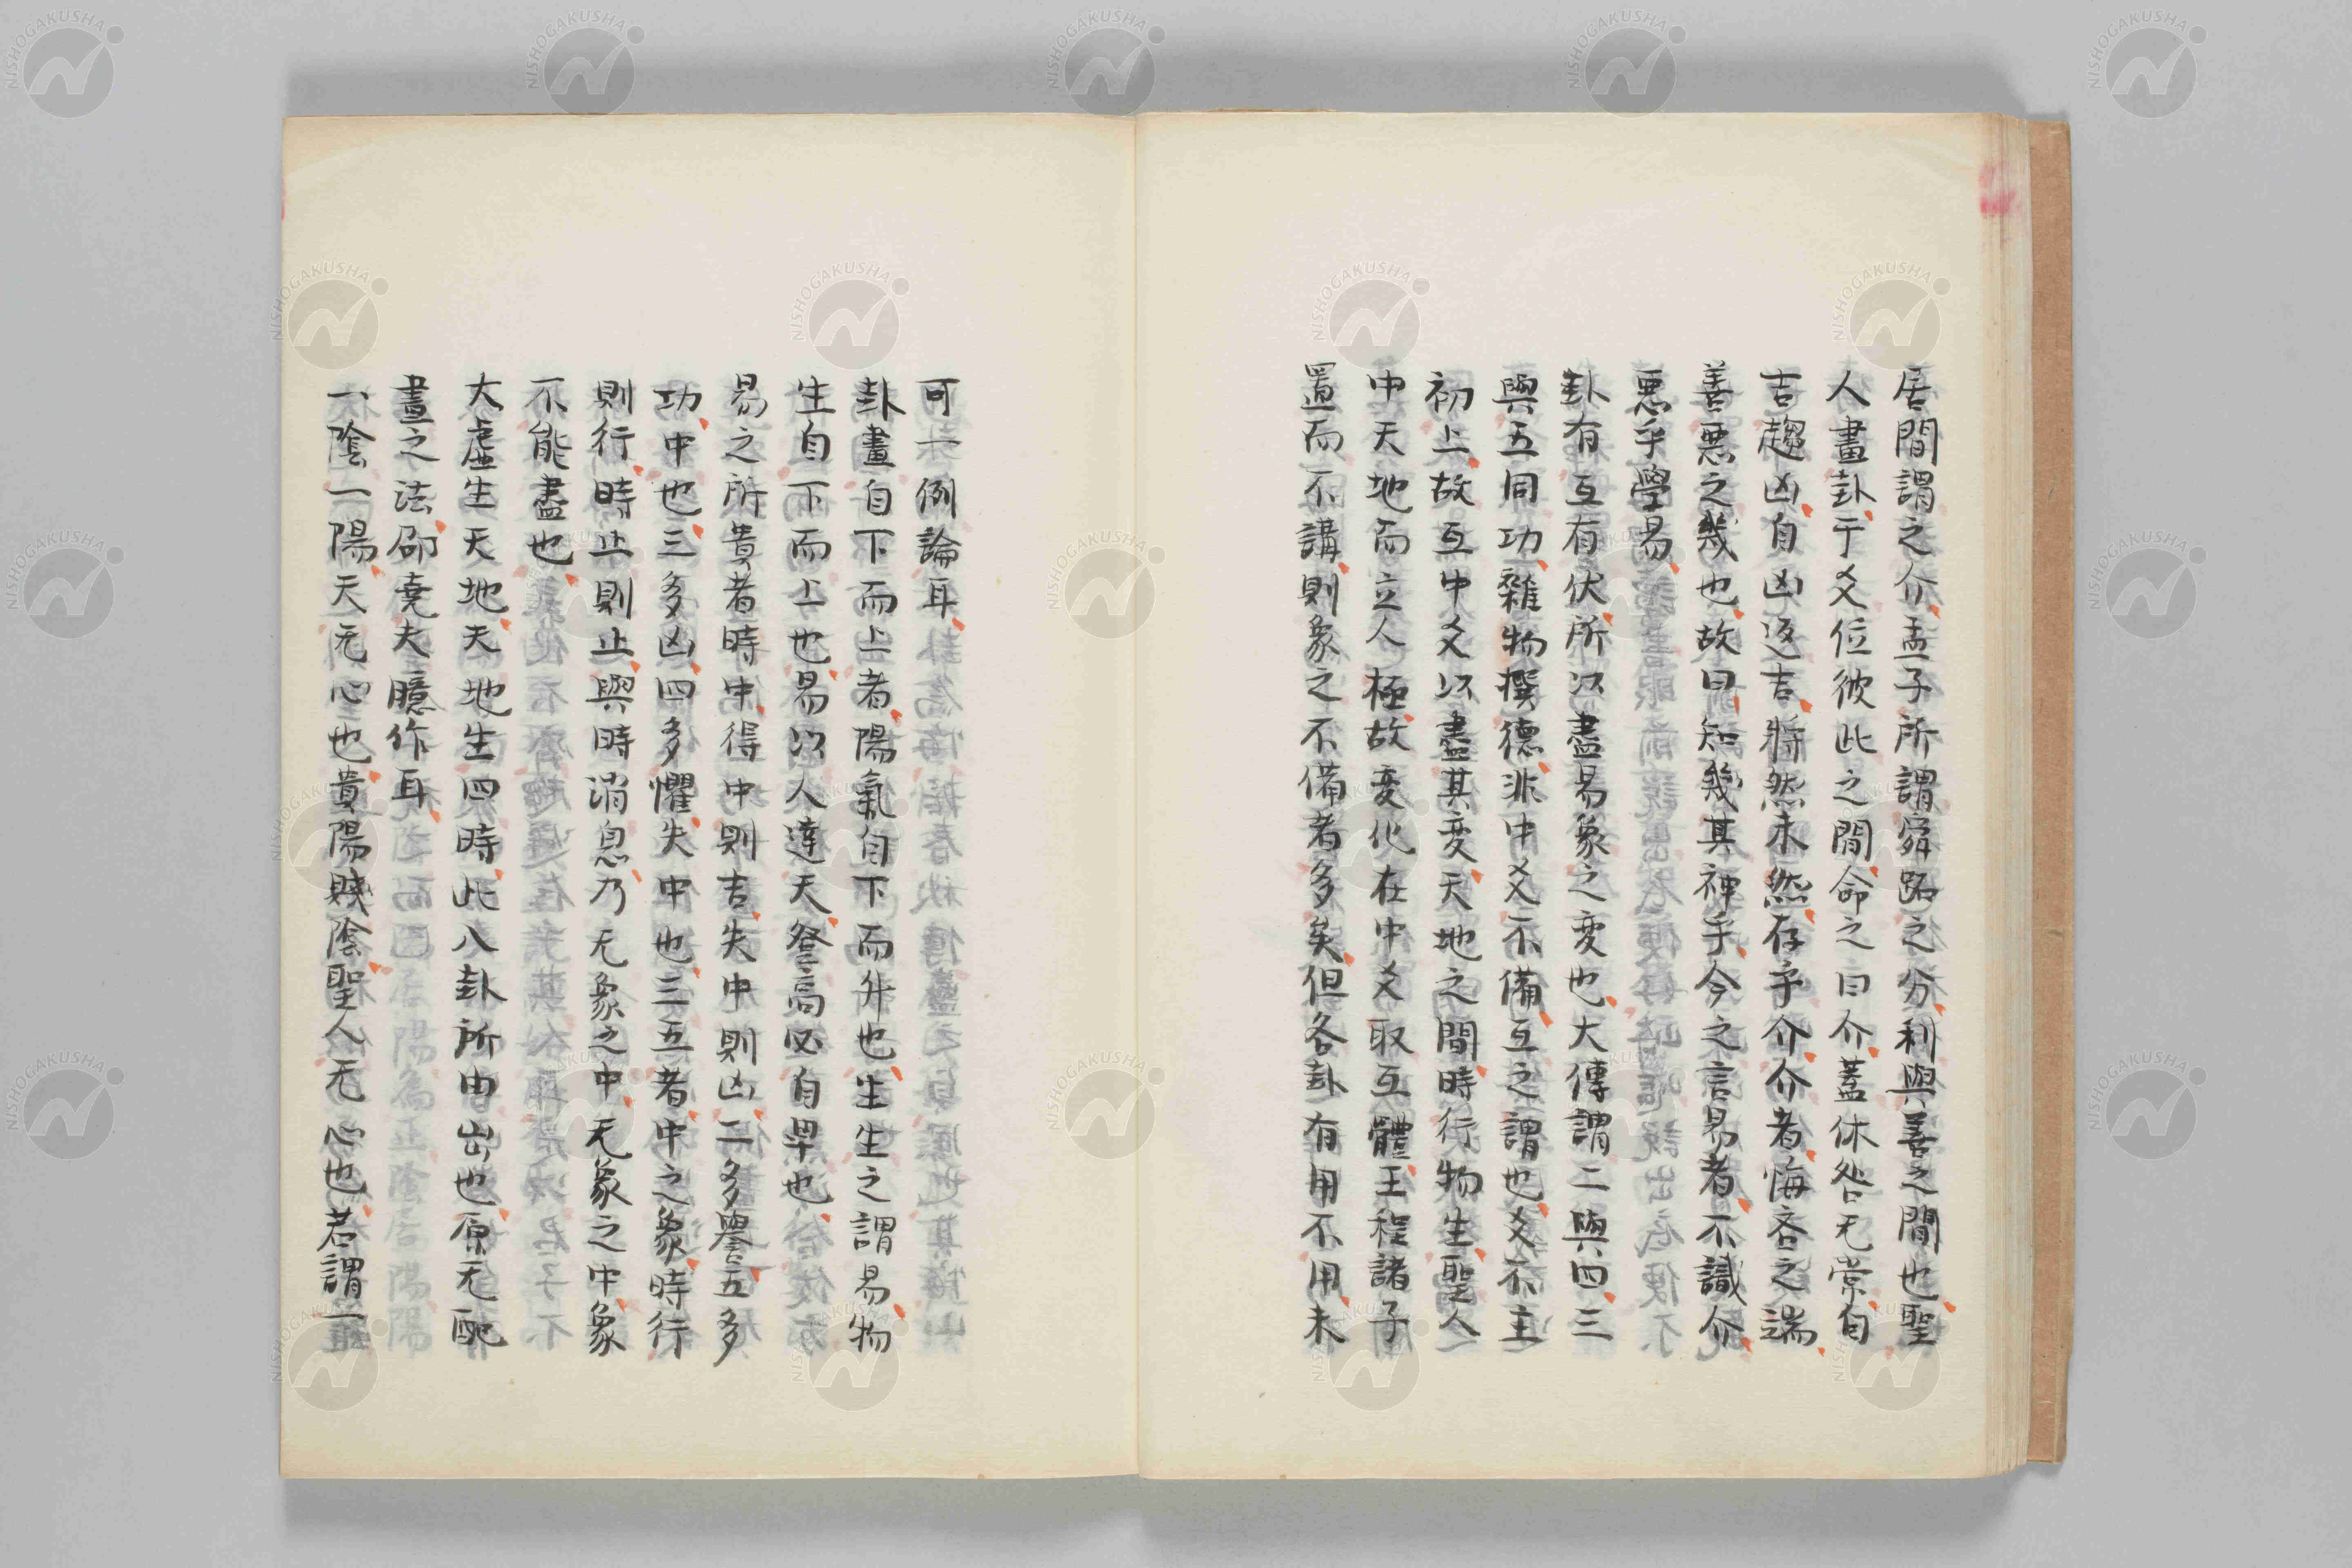 居間謂之介孟子所謂舜跖之分利與善之間也聖
人畫卦于爻位彼此之間命之曰介蓋休咎无常自
吉趨凶自凶返吉將然未然存乎介介者悔吝之端
善惡之幾也故曰知幾其神乎今之言易者不識介
悪乎學易
卦有互有伏所以盡易象之变也大傳謂二與四三
與五同功雜物撰德非中爻不備互之謂也爻不主
初上故互中爻以盡其变天地之間時行物生聖人
中天地而立人極故变化在中爻取互體王程諸子
置而不講則象之不備者多矣但各卦有用不用未
可一例論耳
卦畫自下而上者陽氣自下而升也生生之謂易物
生自下而上也易以人達天登高必自卑也
易之所貴者時中得中則吉失中則凶二多譽五多
功中也三多凶四多懼失中也三五者中之象時行
則行時止則止與時消息乃无象之中无象之中象
不能盡也
大虛生天地天地生四時此八卦所由出也原无配
畫之法邵堯夫臆作耳
一陰一陽天无心也貴陽賤陰聖人无心也若謂一
NISHOGAKUSHA